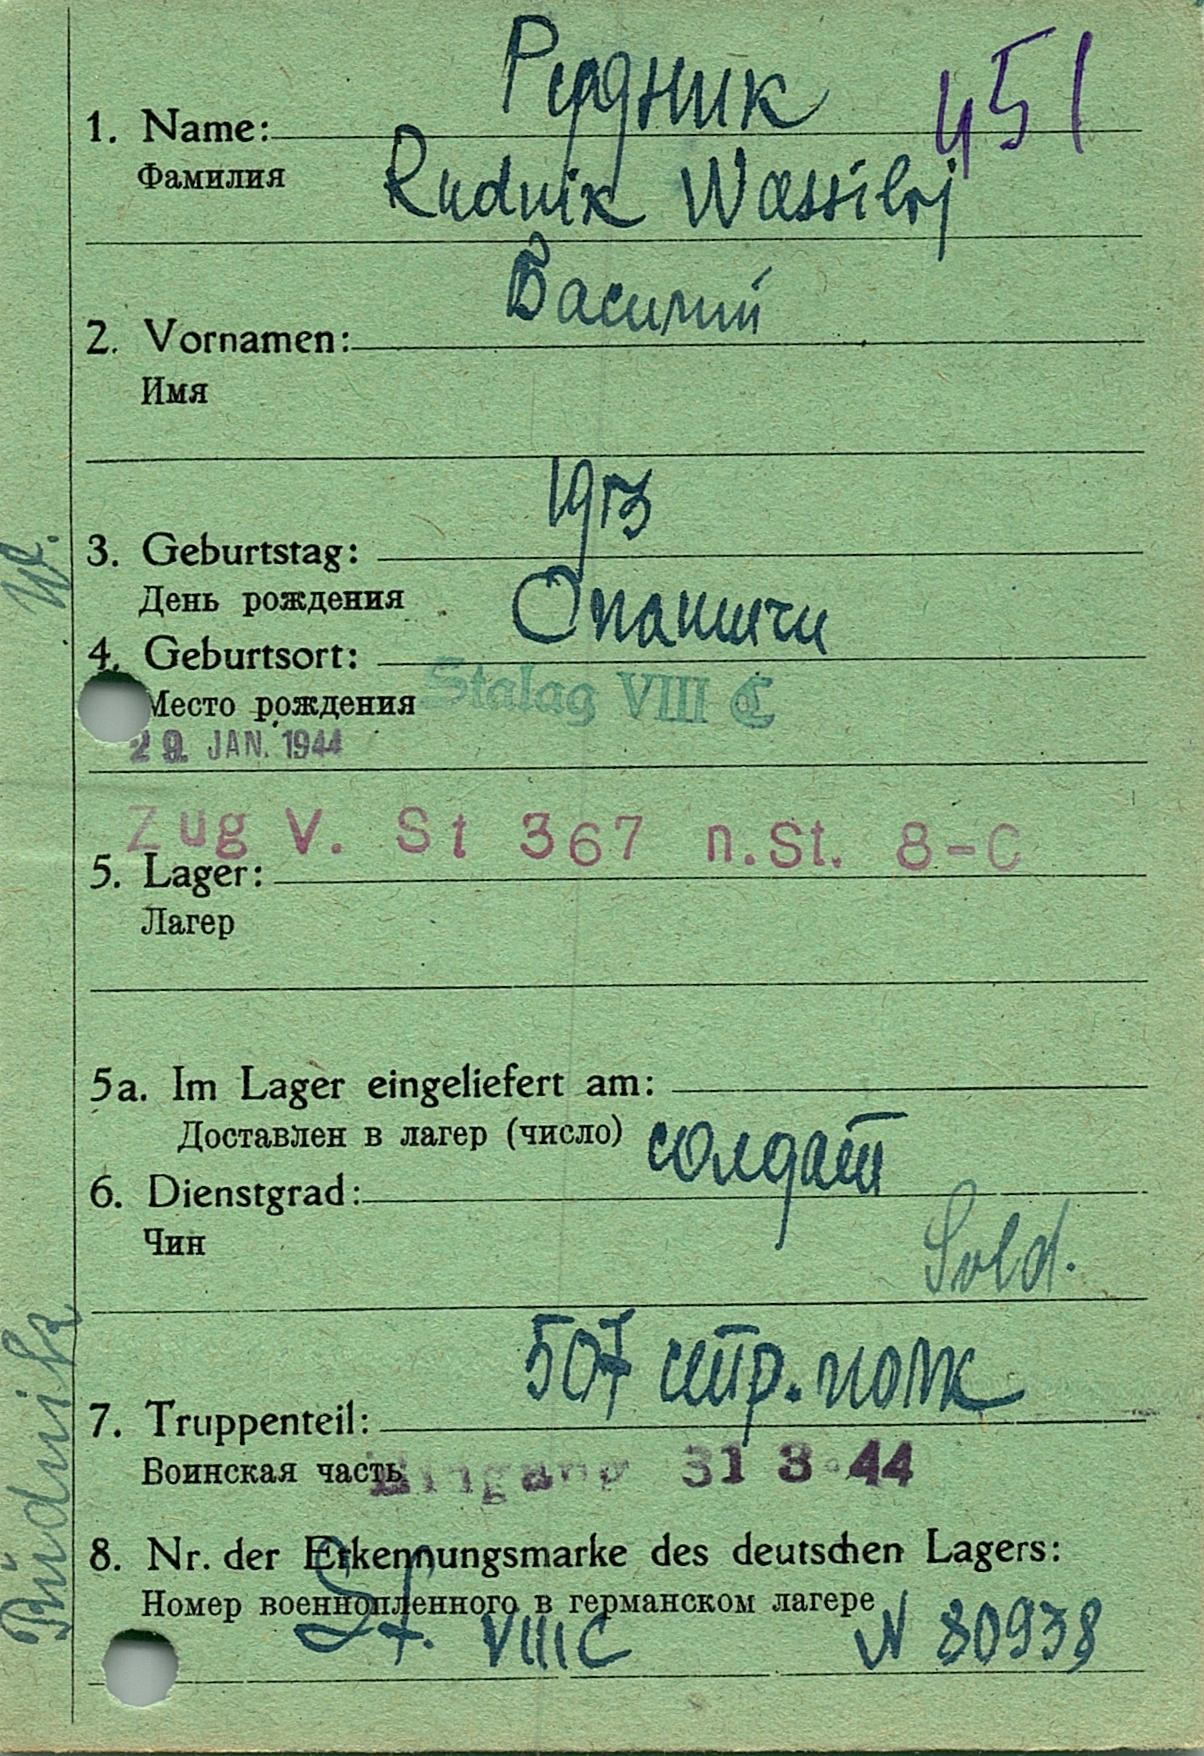 Рудник
451
1. Name:
Фамилия
Rudnik Wassilij
Василий
2. Vornamen:
Имя
1913
3. Geburtstag:
День рождения
W.
Опанычи
4. Geburtsort:
Место рождения
Stalag VIII C
29. JAN. 1944
Zug V. St 367 n.St. 8-C
5. Lager:
Лагер
5a. Im Lager eingeliefert am:
Доставлен в лагер (число)
солдат
6. Dienstgrad:
Чин
Sold.
507 стр. полк
7. Truppenteil:
Воинская часть
Eingang 31 3.44
8. Nr. der Erkennungsmarke des deutschen Lagers:
Номер военнопленного в германском лагере
St. VIII C N 80938
Rudnik